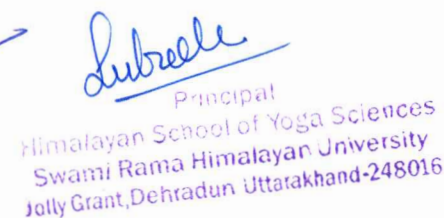 Principal
Himalayan School of Yoga Sciences
Swami Rama Himalayan University
Jolly Grant, Dehradun Uttarakhand-248016